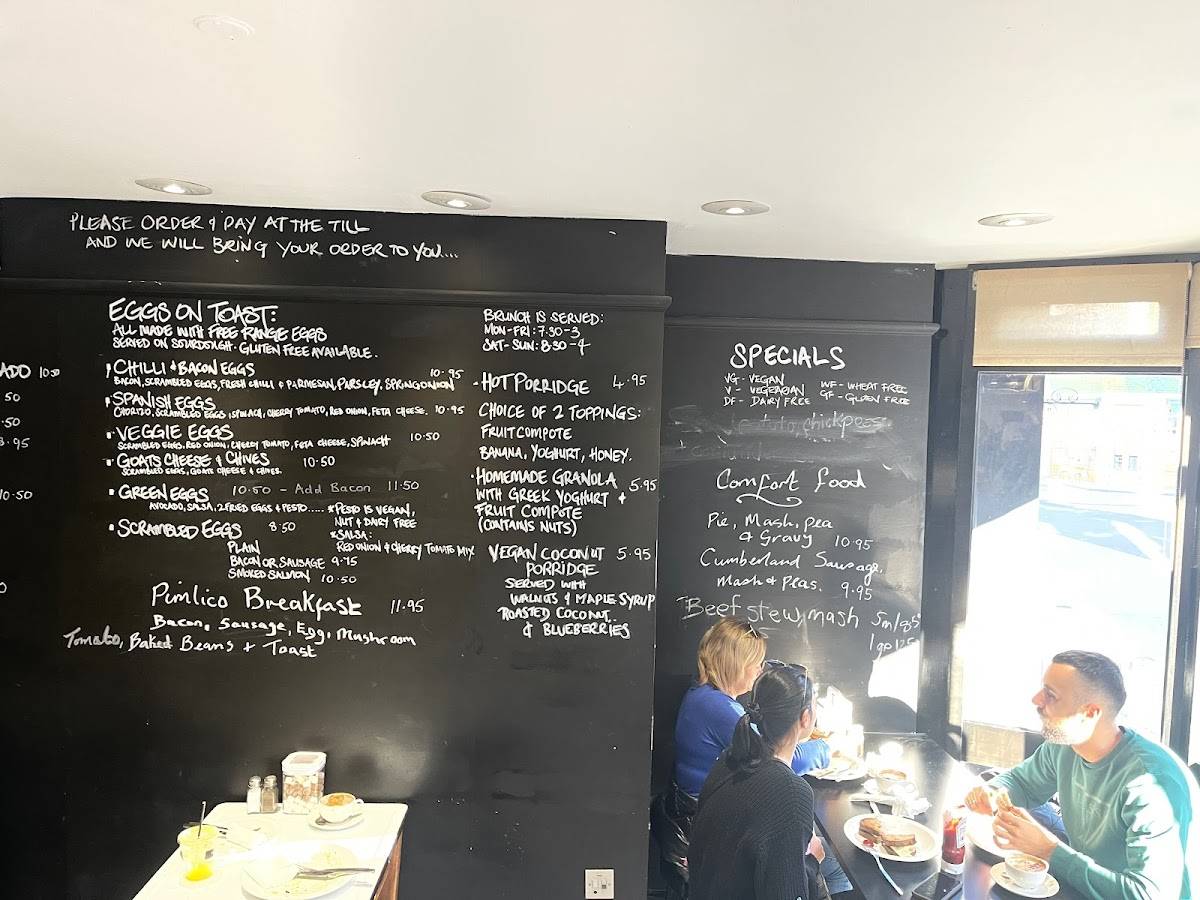 PLEASE ORDER & PAY AT THE TILL
AND WE WILL BRING YOUR ORDER TO YOU...
ADO 10.50
50
.50
3.95
10.50
EGGS ON TOAST:
ALL MADE WITH FREE RANGE EGGS
SERVED ON SOURDOUGH. GLUTEN FREE AVAILABLE.
CHILLI & BACON EGGS 10.95
BACON, SCRAMBLED EGGS, FRESH CHILLI & PARMESAN, PARSLEY, SPRING ONION
SPANISH EGGS
CHORIZO, SCRAMBLED EGGS, SPINACH, CHERRY TOMATO, RED ONION, FETA CHEESE. 10.95
VEGGIE EGGS 10.50
SCRAMBLED EGGS, RED ONION, CHERRY TOMATO, FETA CHEESE, SPINACH
GOATS CHEESE & CHIVES 10.50
SCRAMBLED EGGS, GOATS CHEESE & CHIVES.
GREEN EGGS 10.50 - Add Bacon 11.50
AVOCADO, SALSA, 2 FRIED EGGS & PESTO..... *PESTO IS VEGAN,
NUT & DAIRY FREE
*SALSA:
RED ONION & CHERRY TOMATO MIX
SCRAMBLED EGGS 8.50
PLAIN
BACON OR SAUSAGE 9.75
SMOKED SALMON 10.50
Pimlico Breakfast 11.95
Bacon, Sausage, Egg, Mushroom
Tomato, Baked Beans + Toast
BRUNCH IS SERVED:
MON-FRI: 7.30-3
SAT-SUN: 8:30-4
HOT PORRIDGE 4.95
CHOICE OF 2 TOPPINGS:
FRUIT COMPOTE
BANANA, YOGHURT, HONEY.
HOMEMADE GRANOLA 5.95
WITH GREEK YOGHURT &
FRUIT COMPOTE
(CONTAINS NUTS)
VEGAN COCONUT 5.95
PORRIDGE
SERVED WITH
WALNUTS & MAPLE SYRUP
ROASTED COCONUT.
& BLUEBERRIES
SPECIALS
VG - VEGAN
V - VEGETARIAN WF - WHEAT FREE
DF - DAIRY FREE GF - GLUTEN FREE
chickpeas
Comfort food
Pie, Mash, pea
& Gravy 10.95
Cumberland Sausage,
Mash & Peas. 9.95
Beef stew, mash